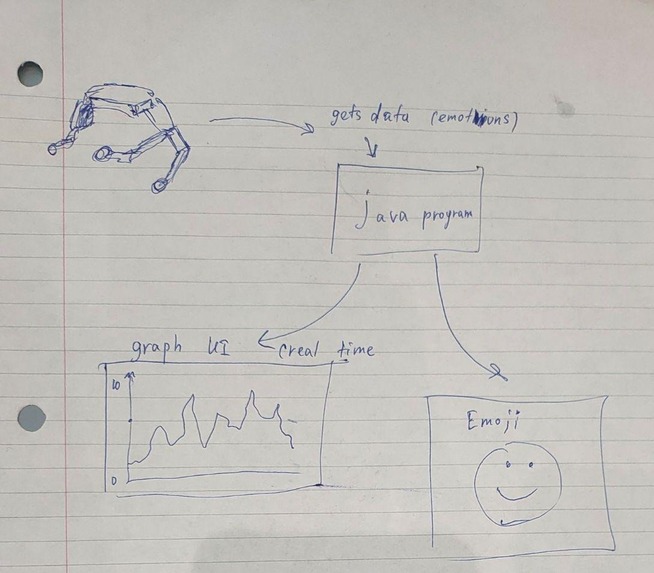 gets data (emotions)
java program
graph UI (real time
10
0
Emoji